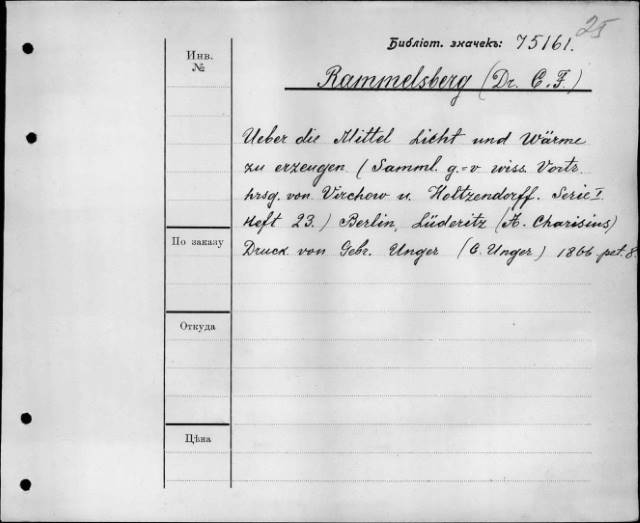 25
Библіот. значекъ: 75161.
Инв.
№
Rammelsberg (Dr. C. F.)
Ueber die Mittel Licht und Wärme
zu erzeugen (Samml. g.-v wiss. Vortr.
hrsg. von Virchow u. Holtzendorff. Serie I.
Heft 23.) Berlin, Lüderitz (A. Charisius)
Druck von Gebr. Unger (C. Unger) 1866 pet. 8.
По заказу
Откуда
Цѣна